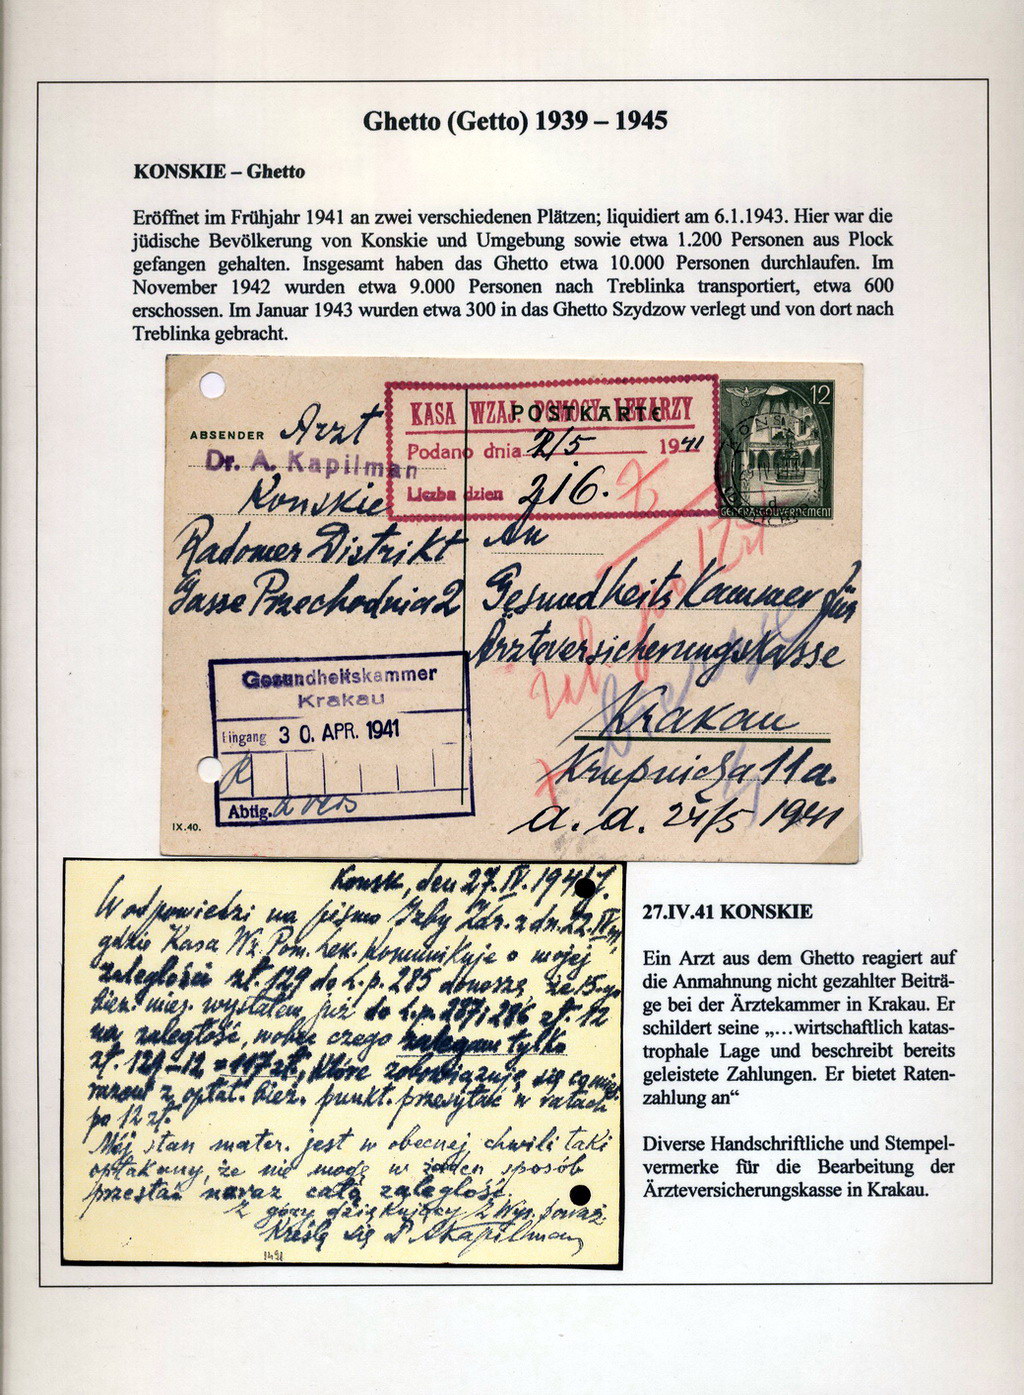 Ghetto (Getto) 1939 – 1945
KONSKIE – Ghetto
Eröffnet im Frühjahr 1941 an zwei verschiedenen Plätzen; liquidiert am 6.1.1943. Hier war die
jüdische Bevölkerung von Konskie und Umgebung sowie etwa 1.200 Personen aus Plock
gefangen gehalten. Insgesamt haben das Ghetto etwa 10.000 Personen durchlaufen. Im
November 1942 wurden etwa 9.000 Personen nach Treblinka transportiert, etwa 600
erschossen. Im Januar 1943 wurden etwa 300 in das Ghetto Szydzow verlegt und von dort nach
Treblinka gebracht.
POSTKARTE
ABSENDER Arzt
Dr. A. Kapilman
Konskie
Radomer Distrikt
Gasse Przechodnia 2
KASA WZAJ. POMOCY LEKARZY
Podano dnia 2/5 1941
Liczba dzien 216.
12
GENERALGOUVERNEMENT
An
Gesundheits Kammer für
Ärzteversicherungskasse
Krakau
Krupnicza 11a.
a. a. 24/5 1941
Gesundheitskammer
Krakau
Eingang 30. APR. 1941
Abtlg.
IX.40.
Konsk, den 27.IV.1941
W odpowiedzi na pismo Izby Zdr. z dn. 22.IV
gdzie Kasa Wz. Pom. Lek. komunikuje o mojej
zaległości zł. 129 do L.p. 285 donoszę, że 15-go
bież. mies. wysłałem już do L.p. 287 i 286 zł. 12
na zaległość, wobec czego zalegam tylko
zł. 129–12 = 117 zł., które zobowiązuję się
razem z opłat. bież. punkt. przesyłać w ratach
po 12 zł.
Mój stan mater. jest w obecnej chwili taki
opłakany, że nie mogę w żaden sposób
przesłać naraz całą zaległość.
Z góry dziękujący z Wys. poważ.
Kreślę się D. A Kapilman
27.IV.41 KONSKIE
Ein Arzt aus dem Ghetto reagiert auf
die Anmahnung nicht gezahlter Beiträ-
ge bei der Ärztekammer in Krakau. Er
schildert seine „…wirtschaftlich katas-
trophale Lage und beschreibt bereits
geleistete Zahlungen. Er bietet Raten-
zahlung an“
Diverse Handschriftliche und Stempel-
vermerke für die Bearbeitung der
Ärzteversicherungskasse in Krakau.